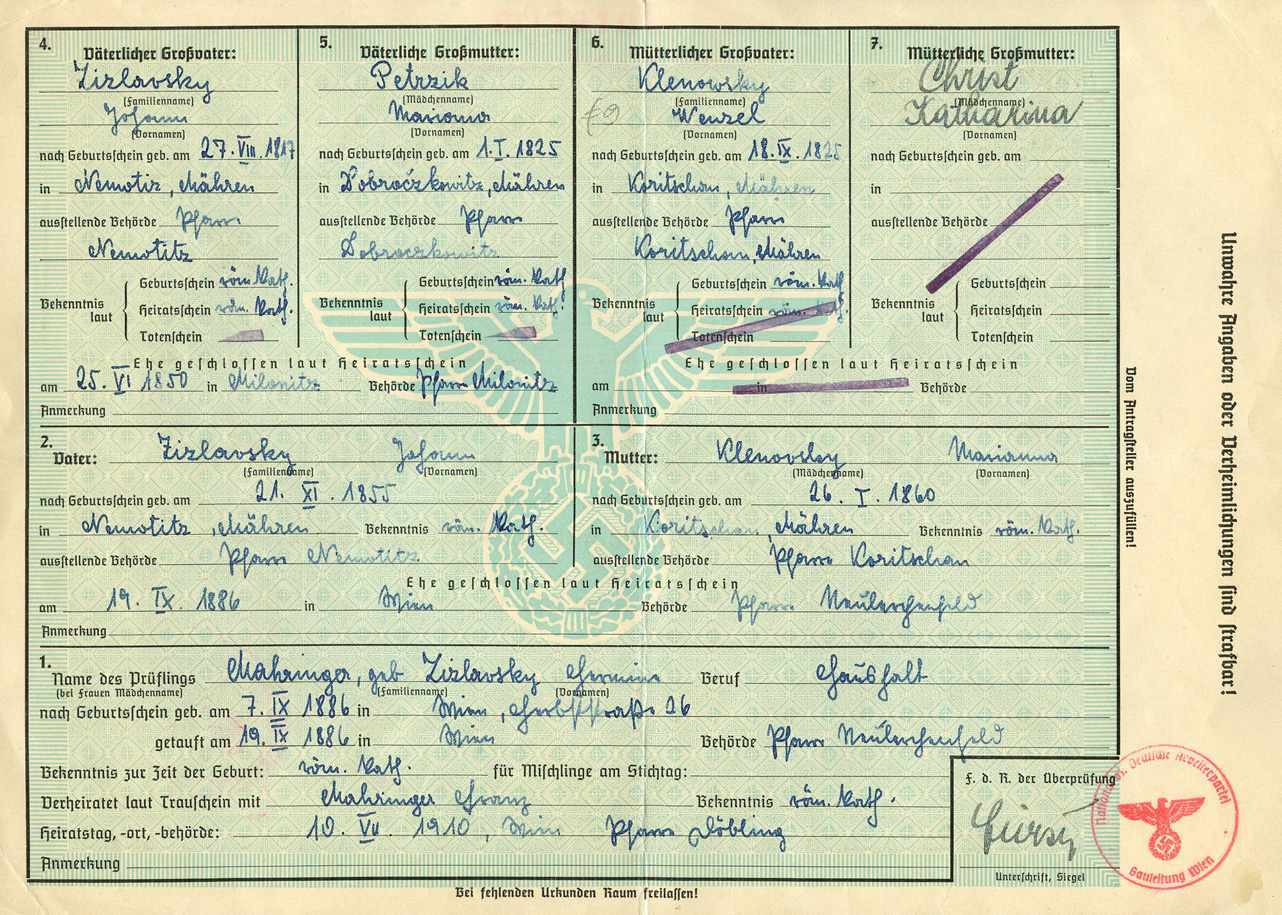 4. Väterlicher Großvater:
Zizlavsky
(Familienname)
Johann
(Vornamen)
nach Geburtsschein geb. am 27. VIII. 1817
in Nemotiz, Mähren
ausstellende Behörde Pfarre
Nemotitz
Bekenntnis laut
Geburtsschein röm. kath.
Heiratsschein röm. kath.
Totenschein
5. Väterliche Großmutter:
Petrzik
(Mädchenname)
Marianna
(Vornamen)
nach Geburtsschein geb. am 1. I. 1825
in Dobroczkowitz, Mähren
ausstellende Behörde Pfarre
Dobroczkowitz
Bekenntnis laut
Geburtsschein röm. kath.
Heiratsschein röm. kath.
Totenschein
Ehe geschlossen laut Heiratsschein
am 25. VI 1850 in Milonitz Behörde Pfarre Milonitz
Anmerkung
6. Mütterlicher Großvater:
Klenowsky
(Familienname)
Wenzel
(Vornamen)
nach Geburtsschein geb. am 18. IX. 1825
in Koritschan, Mähren
ausstellende Behörde Pfarre
Koritschan, Mähren
Bekenntnis laut
Geburtsschein röm. kath.
Heiratsschein röm. kath.
Totenschein
7. Mütterliche Großmutter:
Christ
(Mädchenname)
Katharina
(Vornamen)
nach Geburtsschein geb. am
in
ausstellende Behörde
Bekenntnis laut
Geburtsschein
Heiratsschein
Totenschein
Ehe geschlossen laut Heiratsschein
am in Behörde
Anmerkung
2. Vater: Zizlavsky Johann
(Familienname) (Vornamen)
nach Geburtsschein geb. am 21. XI. 1855
in Nemotitz, Mähren Bekenntnis röm. kath.
ausstellende Behörde Pfarre Nemotitz
3. Mutter: Klenovsky Marianna
(Mädchenname) (Vornamen)
nach Geburtsschein geb. am 26. I. 1860
in Koritschan, Mähren Bekenntnis röm. kath.
ausstellende Behörde Pfarre Koritschan
Ehe geschlossen laut Heiratsschein
am 19. IX. 1886 in Wien Behörde Pfarre Neulerchenfeld
Anmerkung
1. Name des Prüflings Mahringer, geb Zizlavsky Hermine Beruf Haushalt
(bei Frauen Mädchenname) (Familienname) (Vornamen)
nach Geburtsschein geb. am 7. IX 1886 in Wien, Herbststraße 26
getauft am 19. IX 1886 in Wien Behörde Pfarre Neulerchenfeld
Bekenntnis zur Zeit der Geburt: röm. kath. für Mischlinge am Stichtag:
Verheiratet laut Trauschein mit Mahringer Franz Bekenntnis röm. kath.
Heiratstag, -ort, -behörde: 10. VII. 1910, Wien Pfarre Döbling
Anmerkung
F. d. R. der Überprüfung
Unterschrift, Siegel
Nationalsoz. Deutsche Arbeiterpartei
Gauleitung Wien
Bei fehlenden Urkunden Raum freilassen!
Vom Antragsteller auszufüllen!
Unwahre Angaben oder Verheimlichungen sind strafbar!